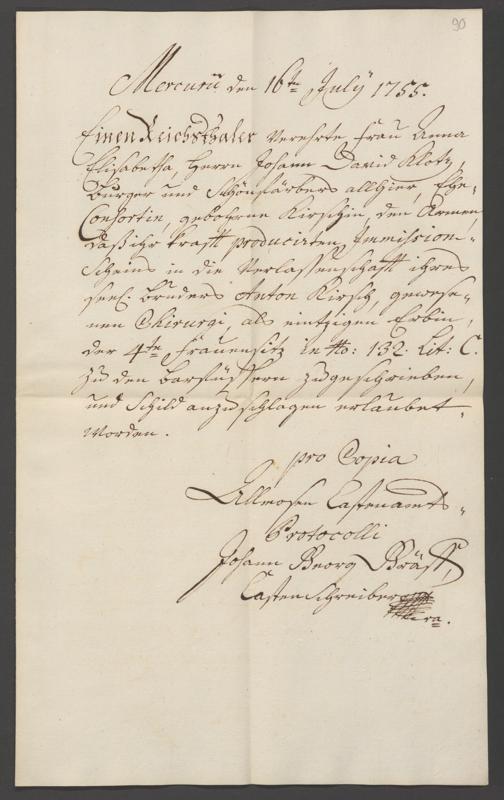 90
Mercurii den 16ten July 1755.
Einen Reichsthaler verehrte Frau Anna
Elisabetha, Herrn Johann David Klotz,
Burger und Schönfärbers allhier, Ehe-
Consortin, gebohrne Kirschin, den Armen,
daß ihr krafft producirten Immission-
Scheins in die Verlassenschafft ihres
seel. Bruders Anton Kirsch, gewese-
nen Chirurgi, als eintzigen Erbin,
der 4te Frauensitz in No: 132. Lit: C.
zu den Barfüssern zugeschrieben,
und Schild anzuschlagen erlaubet
worden.
pro Copia
Allmosen Castenamts-
Protocolli
Johann Georg
Castenschreiber